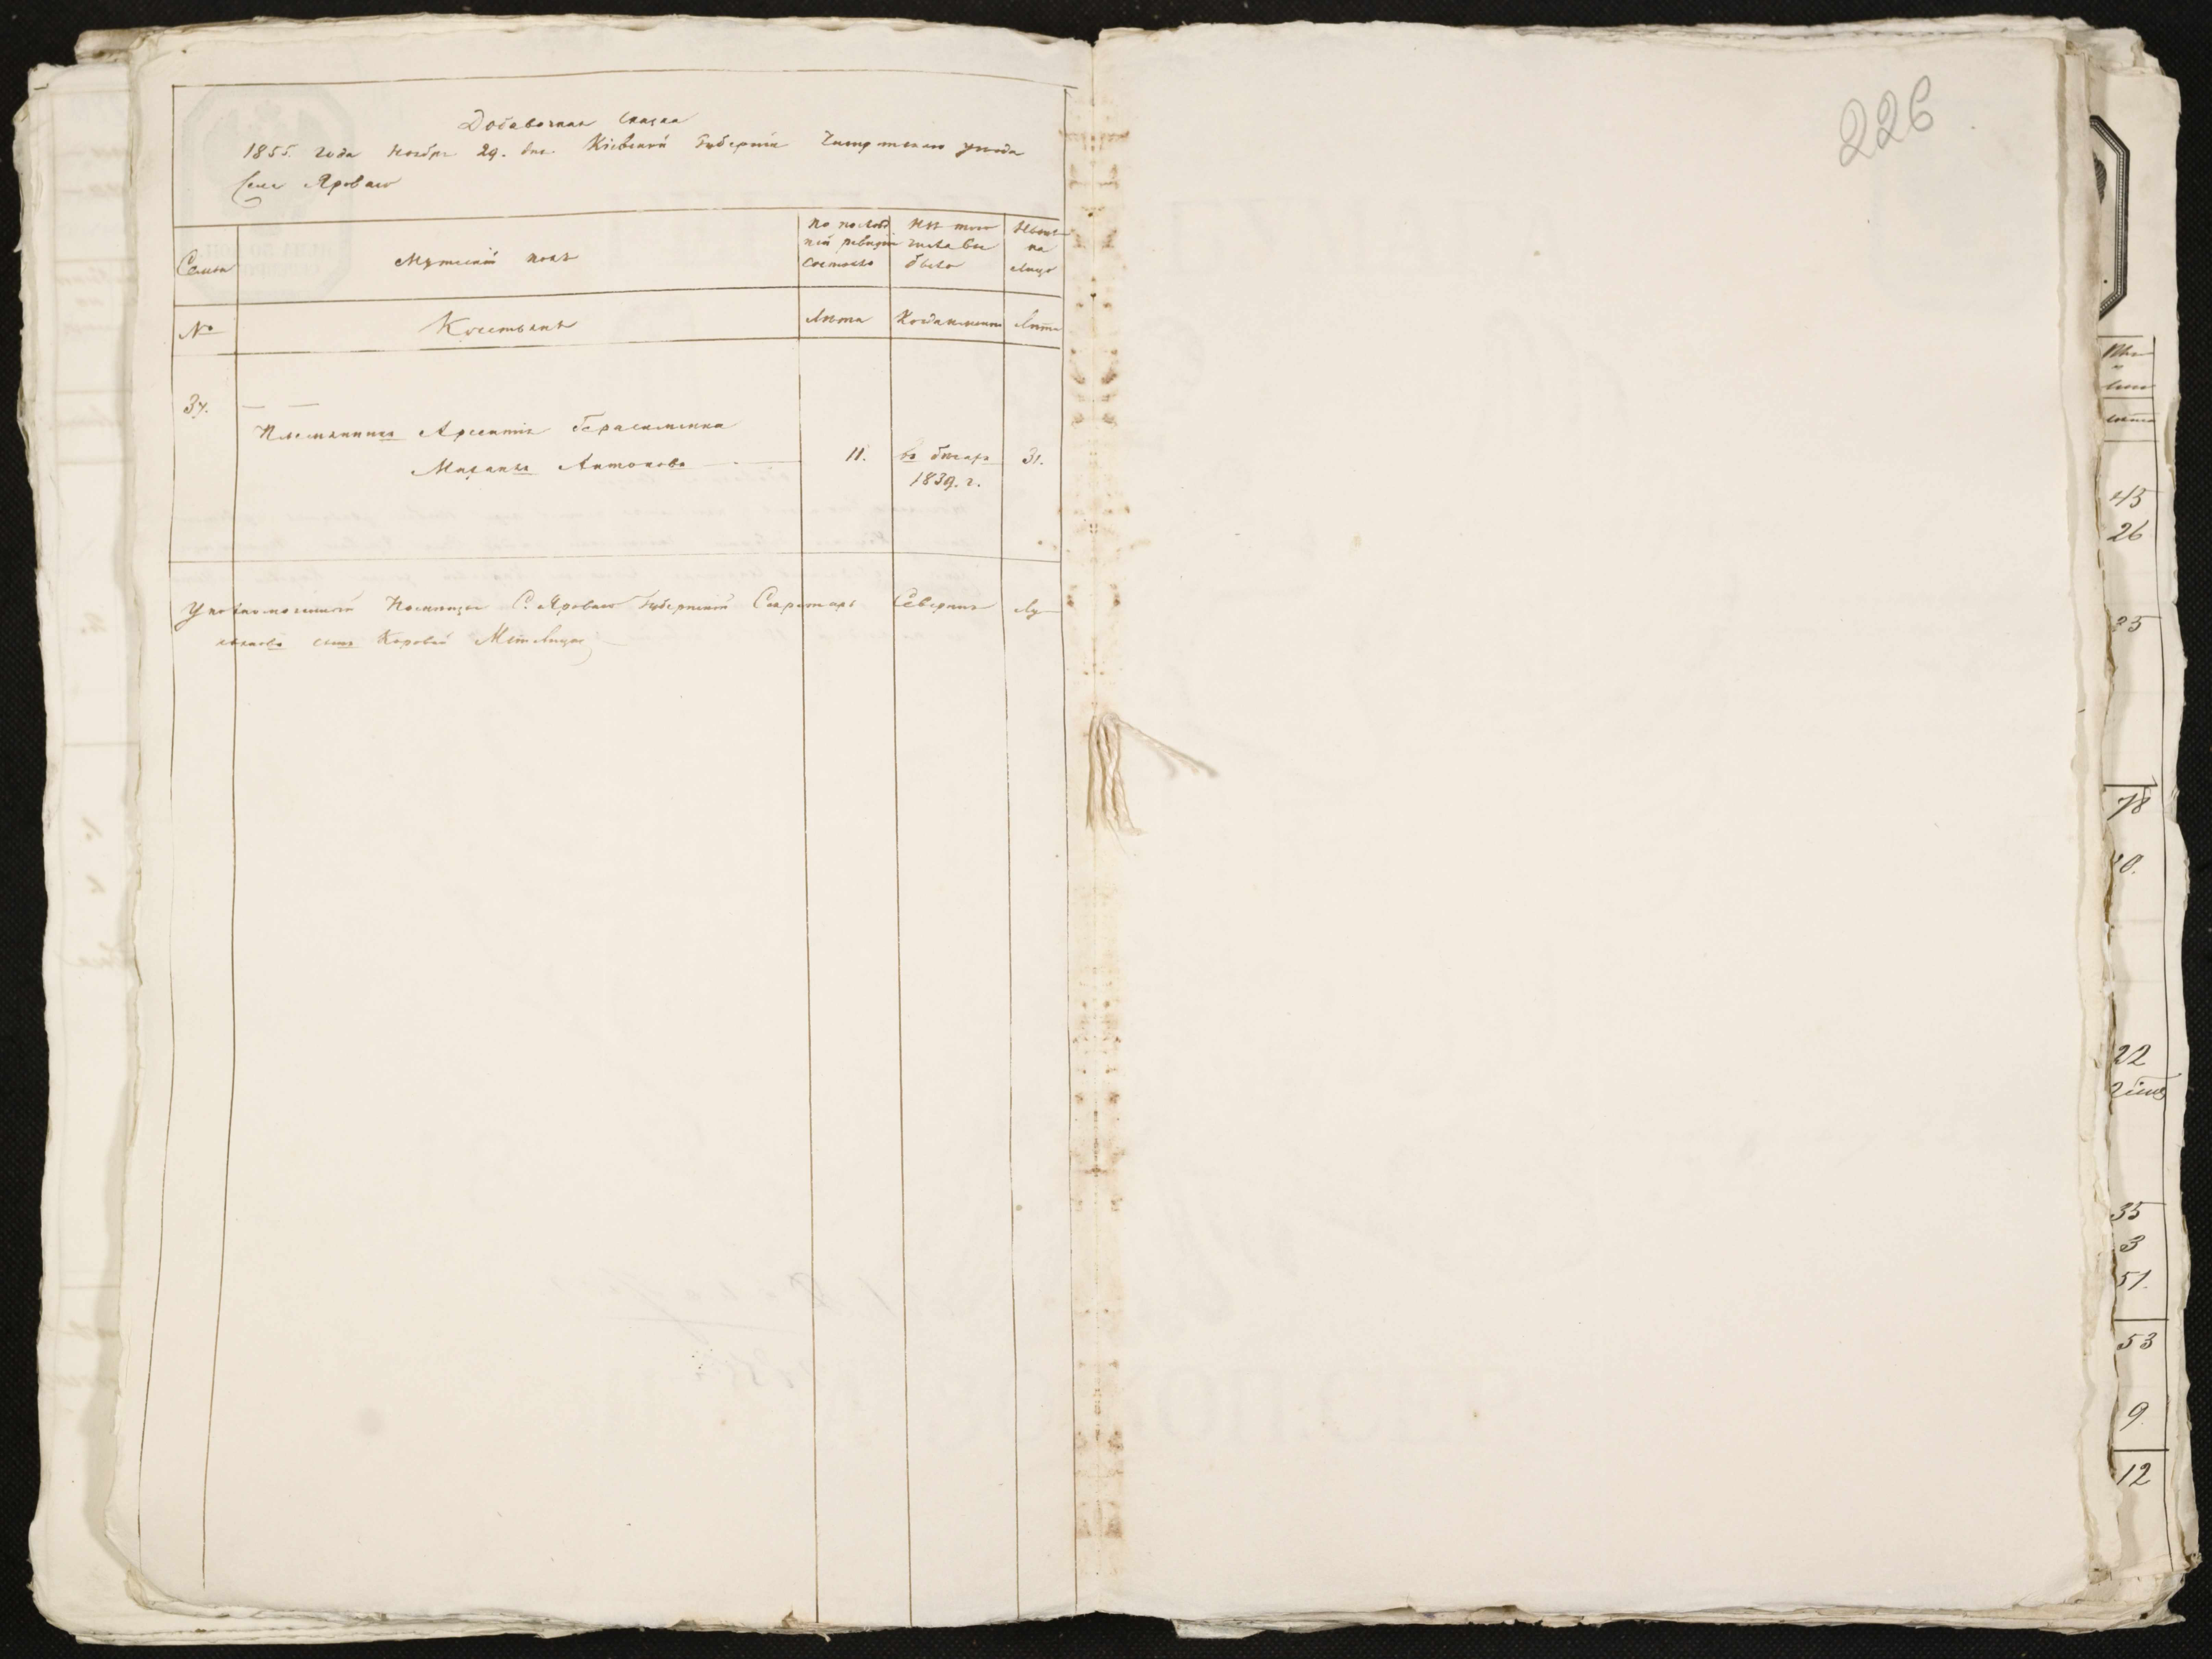 226
Добавочная сказка
1855. года Ноября 29. дня. Кіевской Губерніи уезда
Села Яроваго
Семьи
Мужескій полъ
По послѣд
ней ревизіи
состояло
Изъ того
числа вы
было
Нынѣ
на
лицо
№
Крестьянъ
Лѣта
Когда именно
Лѣта
37.
Племянникъ Арсентія Герасименка
Антоновъ
11.
въ бѣгахъ
1839. г.
31.
Уполномоченной Помѣщи С. Яроваго Губернской Секретарь Северинъ Лу-
кьяновъ сынъ Коровай Метелицкій
45
26
78
22
35
3
51.
53
9
12